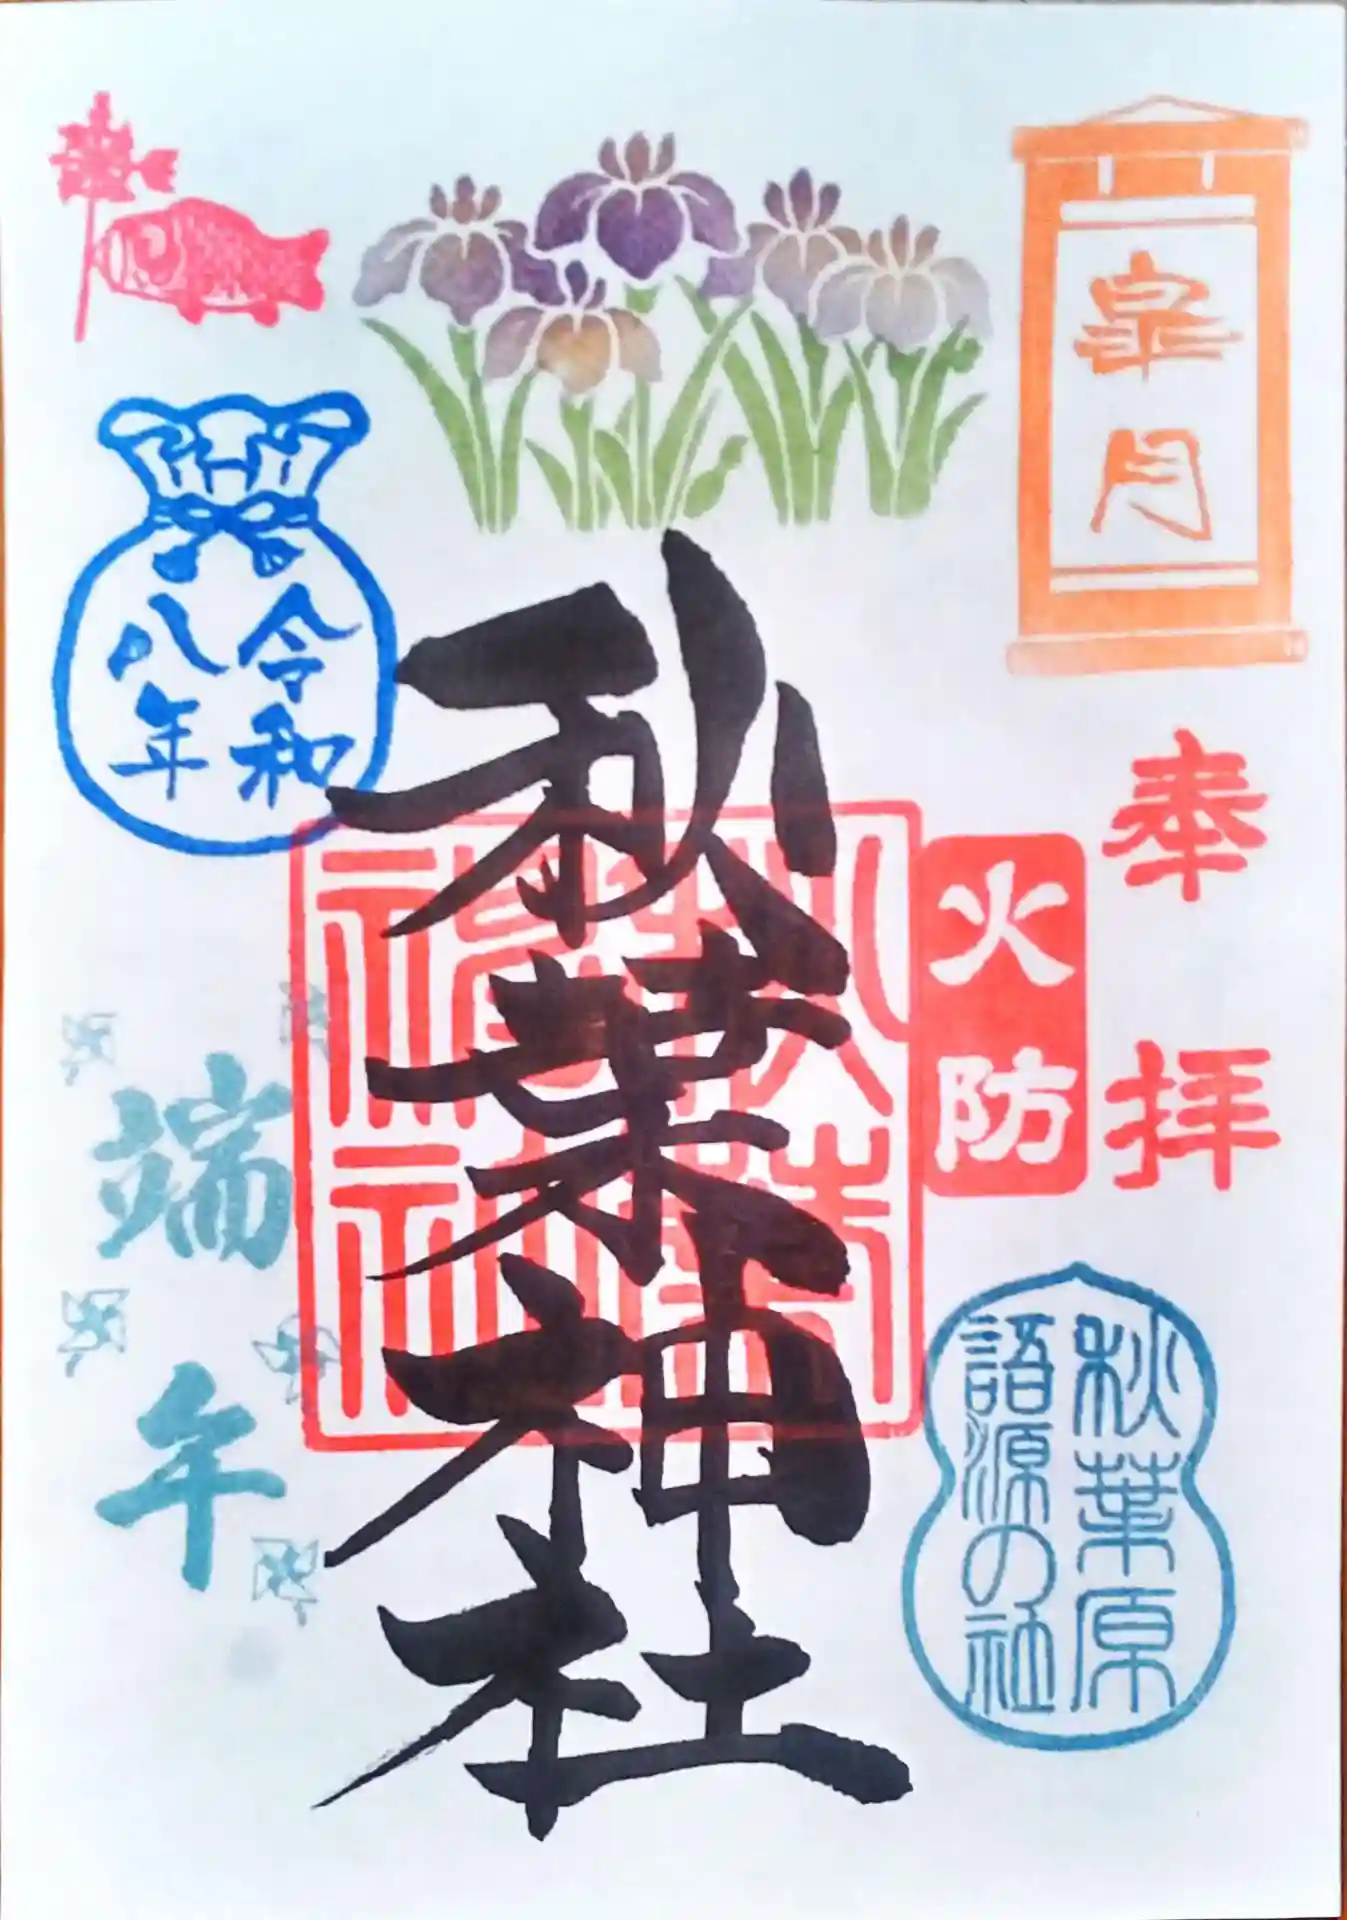 皐月
奉拝
火防
秋葉原
語源の社
秋葉神社
秋葉
神社
令和
八年
端午